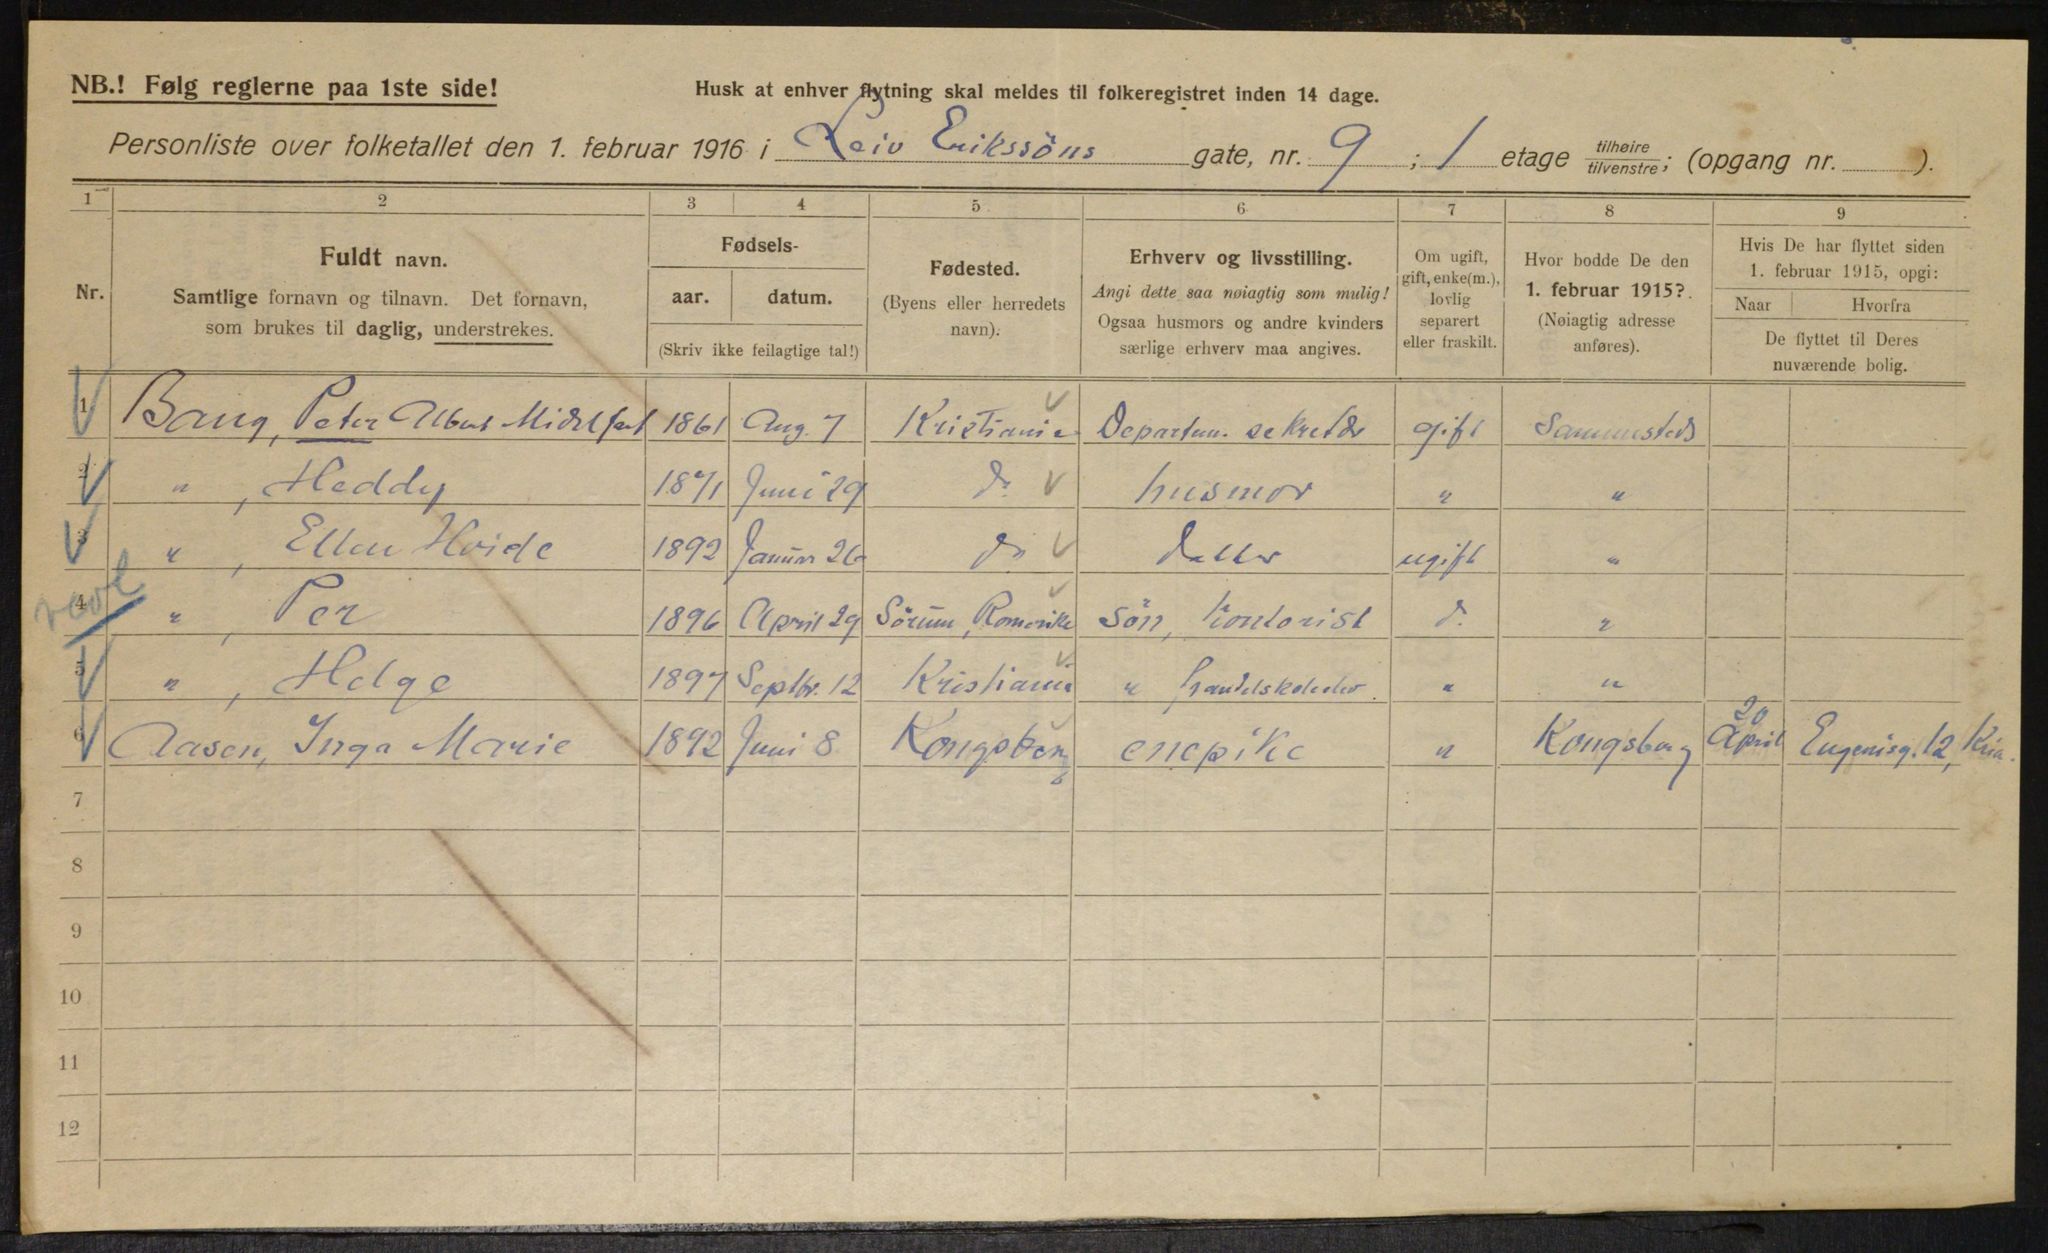 NB.! Følg reglerne paa 1ste side!
Husk at enhver flytning skal meldes til folkeregistret inden 14 dage.
Personliste over folketallet den 1. februar 1916 i Leiv Erikssöns gate, nr. 9 ; 1 etage tilhøire/tilvenstre; (opgang nr. ).
1 2 3 4 5 6 7 8 9
Nr.
Fuldt navn.
Samtlige fornavn og tilnavn. Det fornavn,
som brukes til daglig, understrekes.
Fødsels-
aar. datum.
(Skriv ikke feilagtige tal!)
Fødested.
(Byens eller herredets
navn).
Erhverv og livsstilling.
Angi dette saa nøiagtig som mulig!
Ogsaa husmors og andre kvinders
særlige erhverv maa angives.
Om ugift,
gift, enke(m.),
lovlig
separert
eller fraskilt.
Hvor bodde De den
1. februar 1915?
(Nøiagtig adresse
anføres).
Hvis De har flyttet siden
1. februar 1915, opgi:
Naar Hvorfra
De flyttet til Deres
nuværende bolig.
1 Bang, Peter Albert Midelfart 1861 Aug. 7 Kristiania Departem. sekretær gift Sammesteds
2 " , Heddy 1871 Juni 29 do husmor " "
3 " , Ellen Hvide 1892 Januar 26 do datter ugift "
4 " , Per 1896 April 29 Sörum, Romerike sön, kontorist do "
5 " , Helge 1897 Septbr. 12 Kristiania " handelskoleelev " "
6 Aasen, Inga Marie 1892 Juni 8 Kongsberg enepike " Kongsberg 20 April Eugeniesg. 12, Kria.
7
8
9
10
11
12